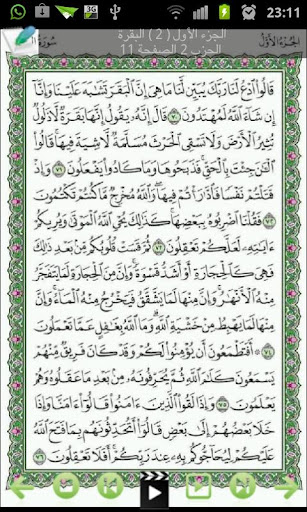 23:11
3G
الجزء الأول ( 2 ) البقرة
الحزب 2 الصفحة 11
الجزء الأول
سورة
قالوا ادع لنا ربك يبين لنا ما هي إن البقر تشابه علينا وإنا
إن شاء الله لمهتدون ٧٠ قال إنه يقول إنها بقرة لا ذلول
تثير الأرض ولا تسقي الحرث مسلمة لا شية فيها قالوا
الآن جئت بالحق فذبحوها وما كادوا يفعلون ٧١ وإذ
قتلتم نفسا فادارأتم فيها والله مخرج ما كنتم تكتمون
٧٢ فقلنا اضربوه ببعضها كذلك يحي الله الموتى ويريكم
آياته لعلكم تعقلون ٧٣ ثم قست قلوبكم من بعد ذلك
فهي كالحجارة أو أشد قسوة وإن من الحجارة لما يتفجر
منه الأنهار وإن منها لما يشقق فيخرج منه الماء وإن
منها لما يهبط من خشية الله وما الله بغافل عما تعملون
٧٤ أفتطمعون أن يؤمنوا لكم وقد كان فريق منهم
يسمعون كلام الله ثم يحرفونه من بعد ما عقلوه وهم
يعلمون ٧٥ وإذا لقوا الذين آمنوا قالوا آمنا وإذا
خلا بعضهم إلى بعض قالوا أتحدثونهم بما فتح الله
عليكم ليحاجوكم به عند ربكم أفلا تعقلون ٧٦